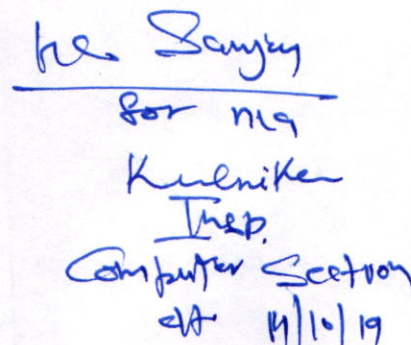 Sanjay
for n/a
Insp.
Computer Section
dt 14/10/19